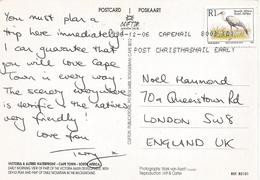 POSTCARD | POSKAART
You must plan a
trip here immediately
I can guarantee that
you will love Cape
Town in every way.
The scenery everywhere
is terrific & the natives
very friendly!
Love from
R1
-12-06 CAPEMAIL
POST CHRISTMASMAIL EARLY
Noel Haymond
70A Queenstown Rd
LONDON SW8
ENGLAND UK
VICTORIA & ALFRED WATERFRONT - CAPE TOWN - SOUTH AFRICA
EARLY MORNING VIEW OF PART OF THE VICTORIA BASIN DEVELOPMENT, WITH
DEVILS PEAK AND PART OF TABLE MOUNTAIN IN THE BACKGROUND.
Photography: Mark van Aardt
Reproduction: Hirt & Carter